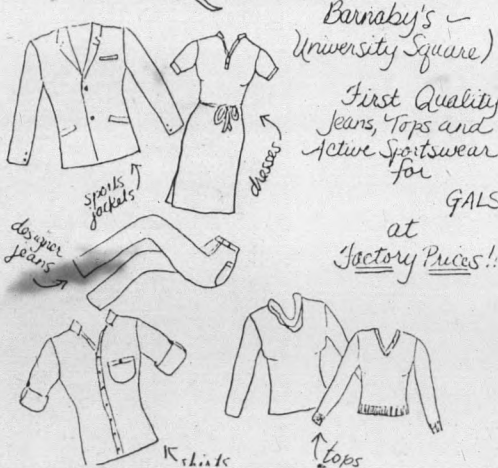 Barnaby's -
University Square)
First Quality
Jeans, Tops and
Active Sportswear
for
GALS
at
Factory Prices!!
sports
jackets
dresses
designer
jeans
shirts
tops